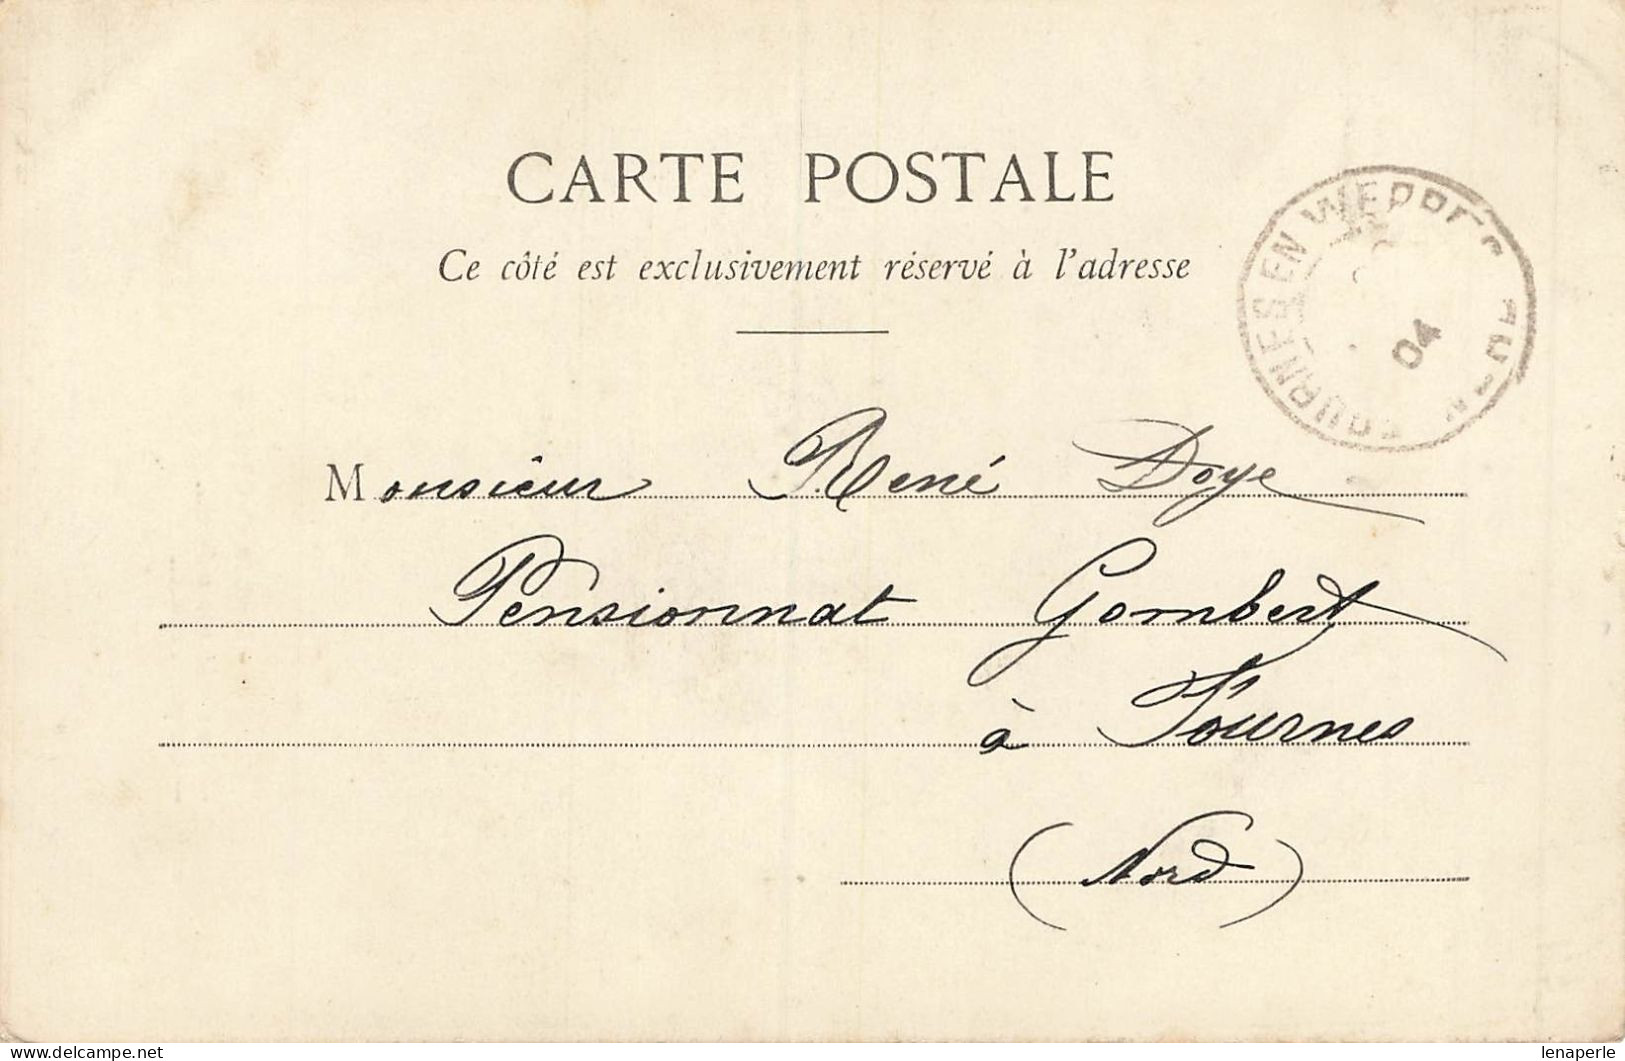 CARTE POSTALE
Ce côté est exclusivement réservé à l'adresse
FOURNES EN WEPPES
04
Monsieur René Doye
Pensionnat Gombert
à Fournes
(Nord)
www.delcampe.net
lenaperle